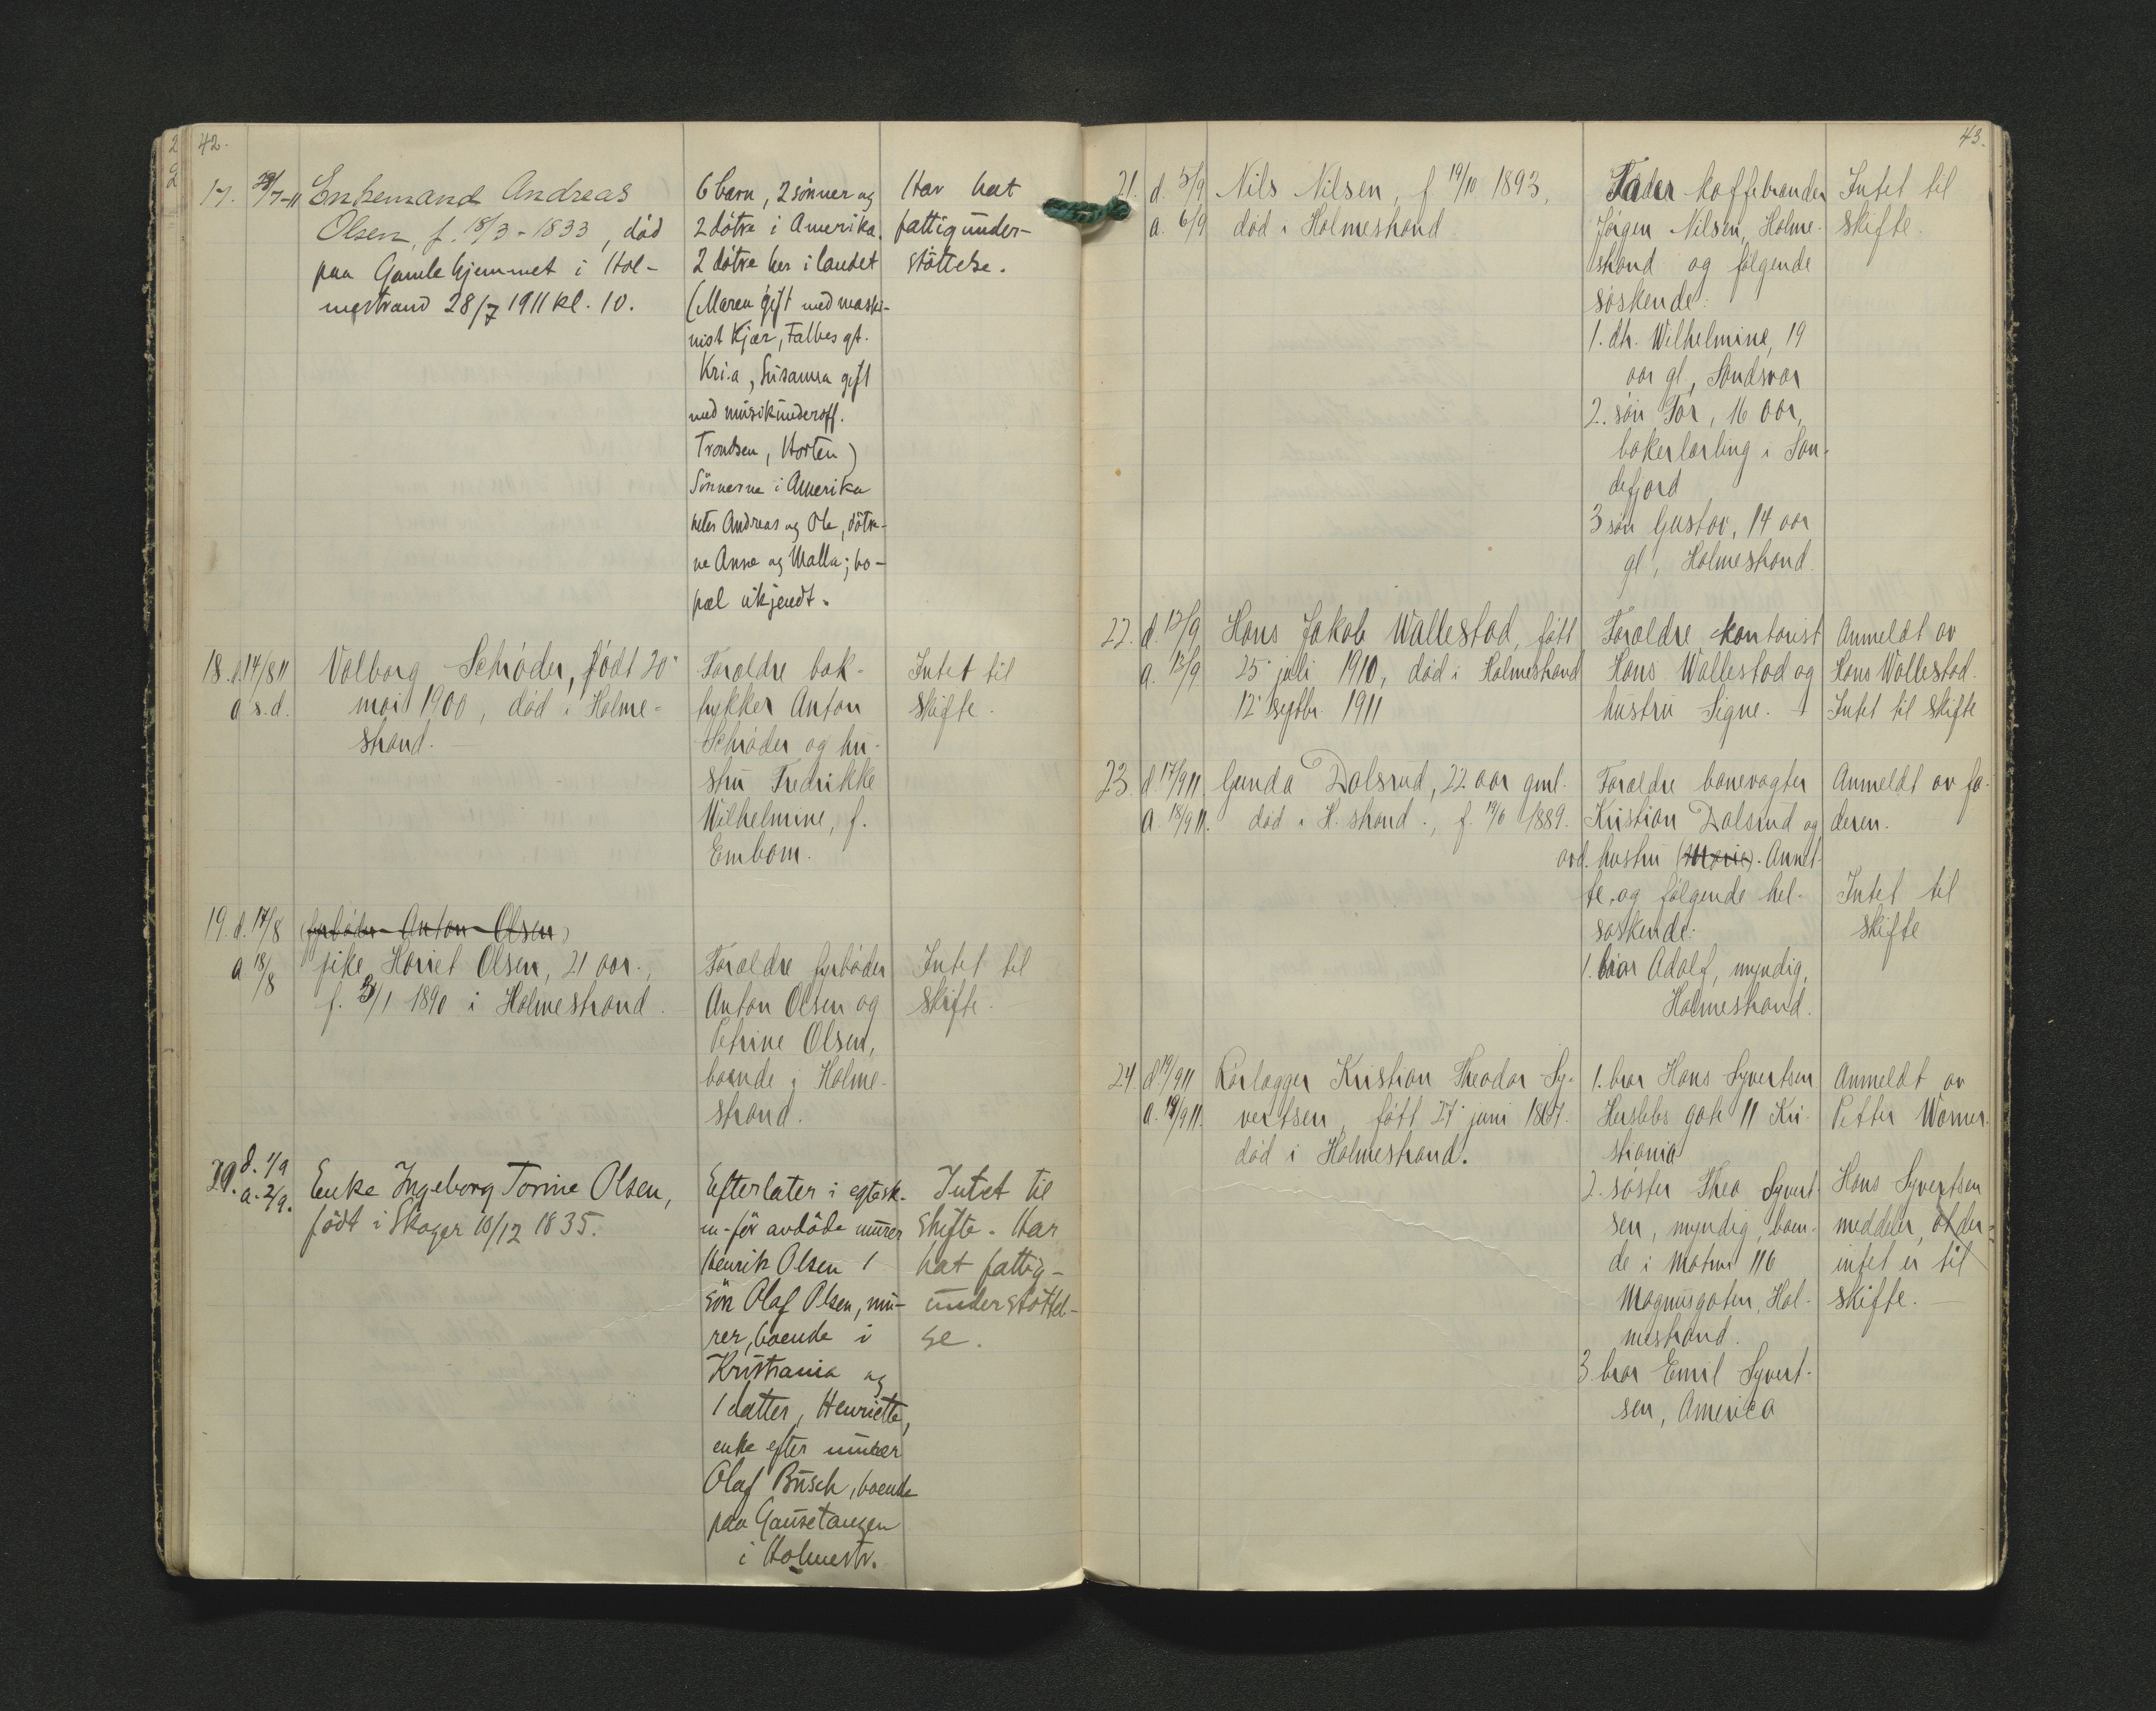 42.
17. 28/7-11 Enkemand Andreas
Olsen, f. 18/3-1833, död
paa Gamlehjemmet i Hol-
mestrand 28/7 1911 kl. 10.
6 barn, 2 sönner og
2 dötre i Amerika.
2 dötre her i landet
(Maren gift med maski-
nist Kjær, Falbes gt.
Kr.i.a, Susanna gift
med musikunderoff.
Trondsen, Horten)
Sönnerne i Amerika
heter Andreas og Ole, dötre-
ne Anna og Malla; bo-
pæl ukjendt.
Har hat
fattigunder-
stöttelse.
18. d. 14/8 11
a s.d.
Valborg Schrøder, født 20
mai 1900, død i Holme-
strand.
Forældre bok-
trykker Anton
Schrøder og hu-
stru Fredrikke
Wilhelmine, f.
Embom.
Intet til
skifte.
19. d. 17/8
a 18/8
(fyrbøder Anton Olsen)
pike Hariet Olsen, 21 aar.,
f. 3/1 1890 i Holmestrand.
Forældre fyrbøder
Anton Olsen og
Petrine Olsen,
boende i Holme-
strand.
Intet til
skifte.
20. d. 1/9
a. 2/9.
Enke Ingeborg Torine Olsen,
födt i Skoger 10/12 1835.
Efterlater i egtesk.
m. för avdöde murer
Henrik Olsen 1
sön Olaf Olsen, mu-
rer, boende i
Kristiania og
1 datter, Henriette,
enke efter murer
Olaf Busch, boende
paa Gausetangen
i Holmestr.
Intet til
skifte. Har
hat fattig-
understöttel-
se.
43.
21. d. 5/9
a. 6/9
Nils Nilsen, f 19/10 1893,
død i Holmestrand
Fader kaffebrænder
Jørgen Nilsen, Holme-
strand og følgende
søskende:
1. dtr. Wilhelmine, 19
aar gl, Sandsvær
2. søn Tor, 16 aar,
bakerlærling i San-
defjord
3 søn Gustav, 14 aar
gl, Holmestrand.
Intet til
skifte.
22. d. 12/9
a. 13/9
Hans Jakob Wallestad, født
25 juli 1910, død i Holmestrand
12 septbr. 1911
Forældre kontorist
Hans Wallestad og
hustru Signe.
Anmeldt av
Hans Wallestad.
Intet til skifte
23. d 17/9 11
a. 18/9 11.
Gunda Dalsrud, 22 aar gml.
død i H.strand., f. 19/6 1889.
Forældre banevogter
Kristian Dalsrud og
avd. hustru (Marie). Annet-
te, og følgende hel-
søskende:
1. bror Adolf, myndig,
Holmestrand.
Anmeldt av fa-
deren.
Intet til
skifte
24. d 19/9 11
a. 19/9 11.
Rørlægger Kristian Theodor Sy-
vertsen, født 27 juni 1867.
død i Holmestrand.
1. bror Hans Syvertsen
Herslebs gate 11 Kri-
stiania
2. søster Thea Syvert-
sen, myndig, boen-
de i Matrnr 116
Magnusgaten, Hol-
mestrand.
3. bror Emil Syvert-
sen, America
Anmeldt av
Petter Warner.
Hans Syvertsen
meddeler, at der
intet er til
skifte.